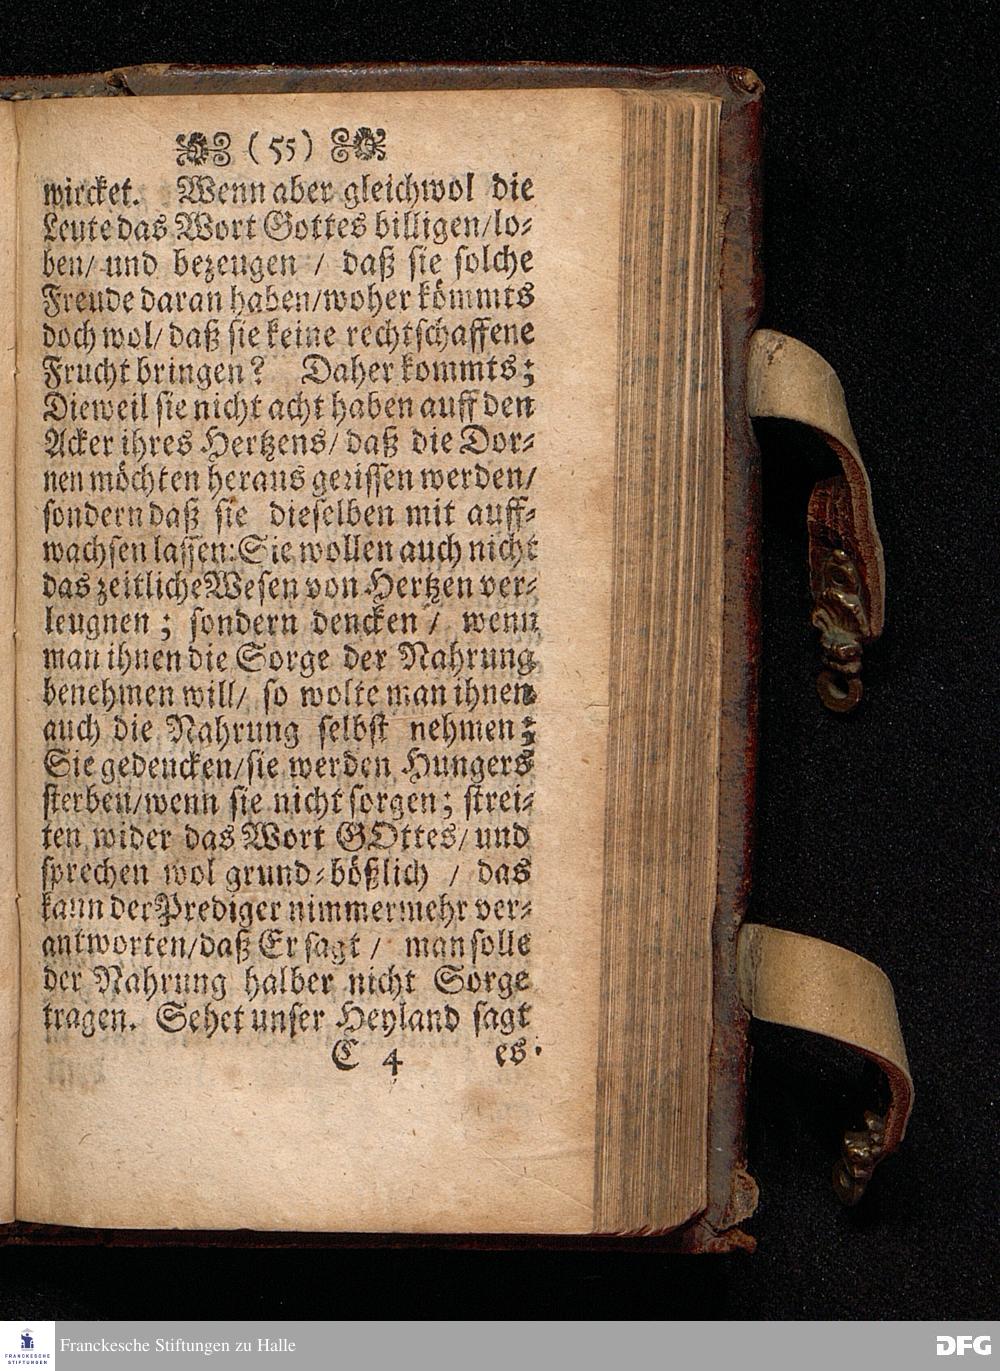 (55)
wircket. Wenn aber gleichwol die
Leute das Wort Gottes billigen/lo-
ben/ und bezeugen / daß sie solche
Freude daran haben/woher kömmts
doch wol/ daß sie keine rechtschaffene
Frucht bringen? Daher kommts;
Dieweil sie nicht acht haben auff den
Acker ihres Hertzens/ daß die Dor-
nen möchten heraus gerissen werden/
sondern daß sie dieselben mit auff-
wachsen lassen: Sie wollen auch nicht
das zeitliche Wesen von Hertzen ver-
leugnen ; sondern dencken / wenn
man ihnen die Sorge der Nahrung
benehmen will/ so wolte man ihnen
auch die Nahrung selbst nehmen;
Sie gedencken/sie werden Hungers
sterben/wenn sie nicht sorgen; strei-
ten wider das Wort GOttes/ und
sprechen wol grund-bößlich / das
kann der Prediger nimmermehr ver-
antworten/daß Er sagt / man solle
der Nahrung halber nicht Sorge
tragen. Sehet unser Heyland sagt
C 4 es
FRANCKESCHE STIFTUNGEN
Franckesche Stiftungen zu Halle
DFG